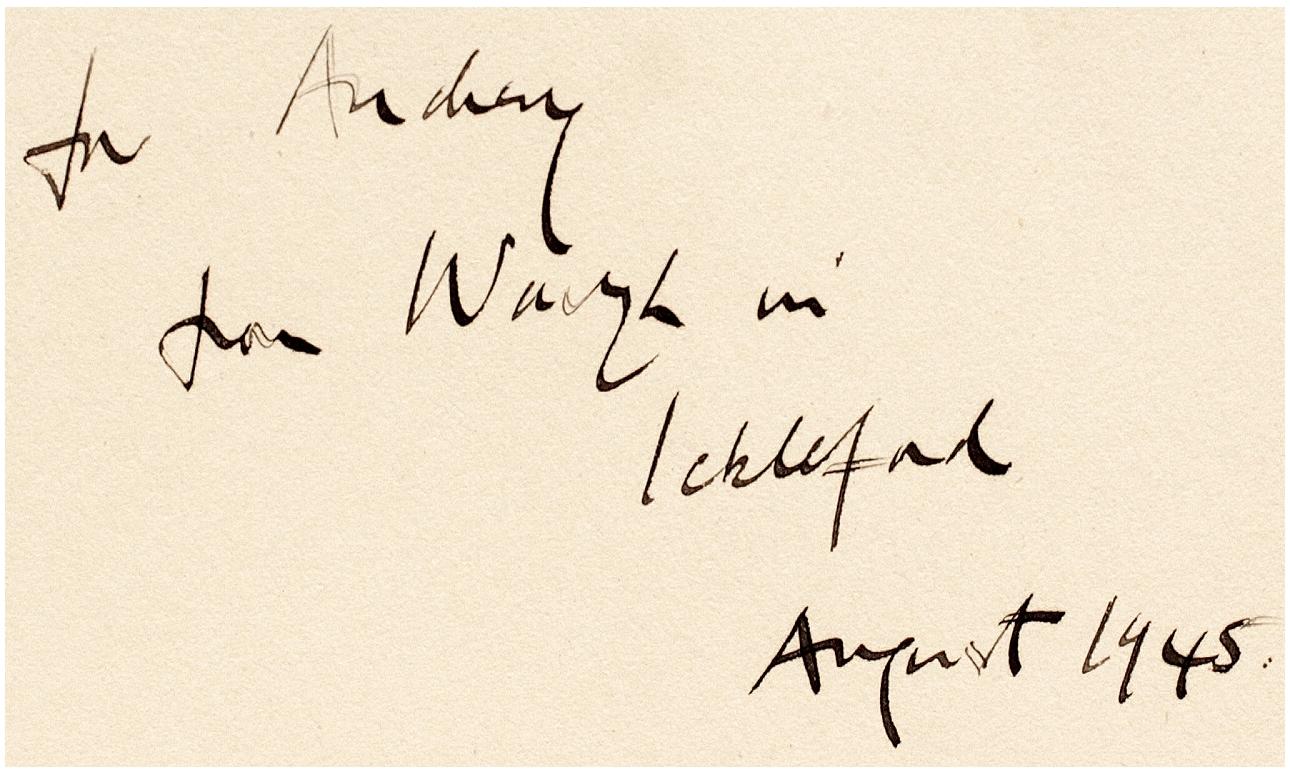 for Audrey
from Waugh in
Ickleford
August 1945.